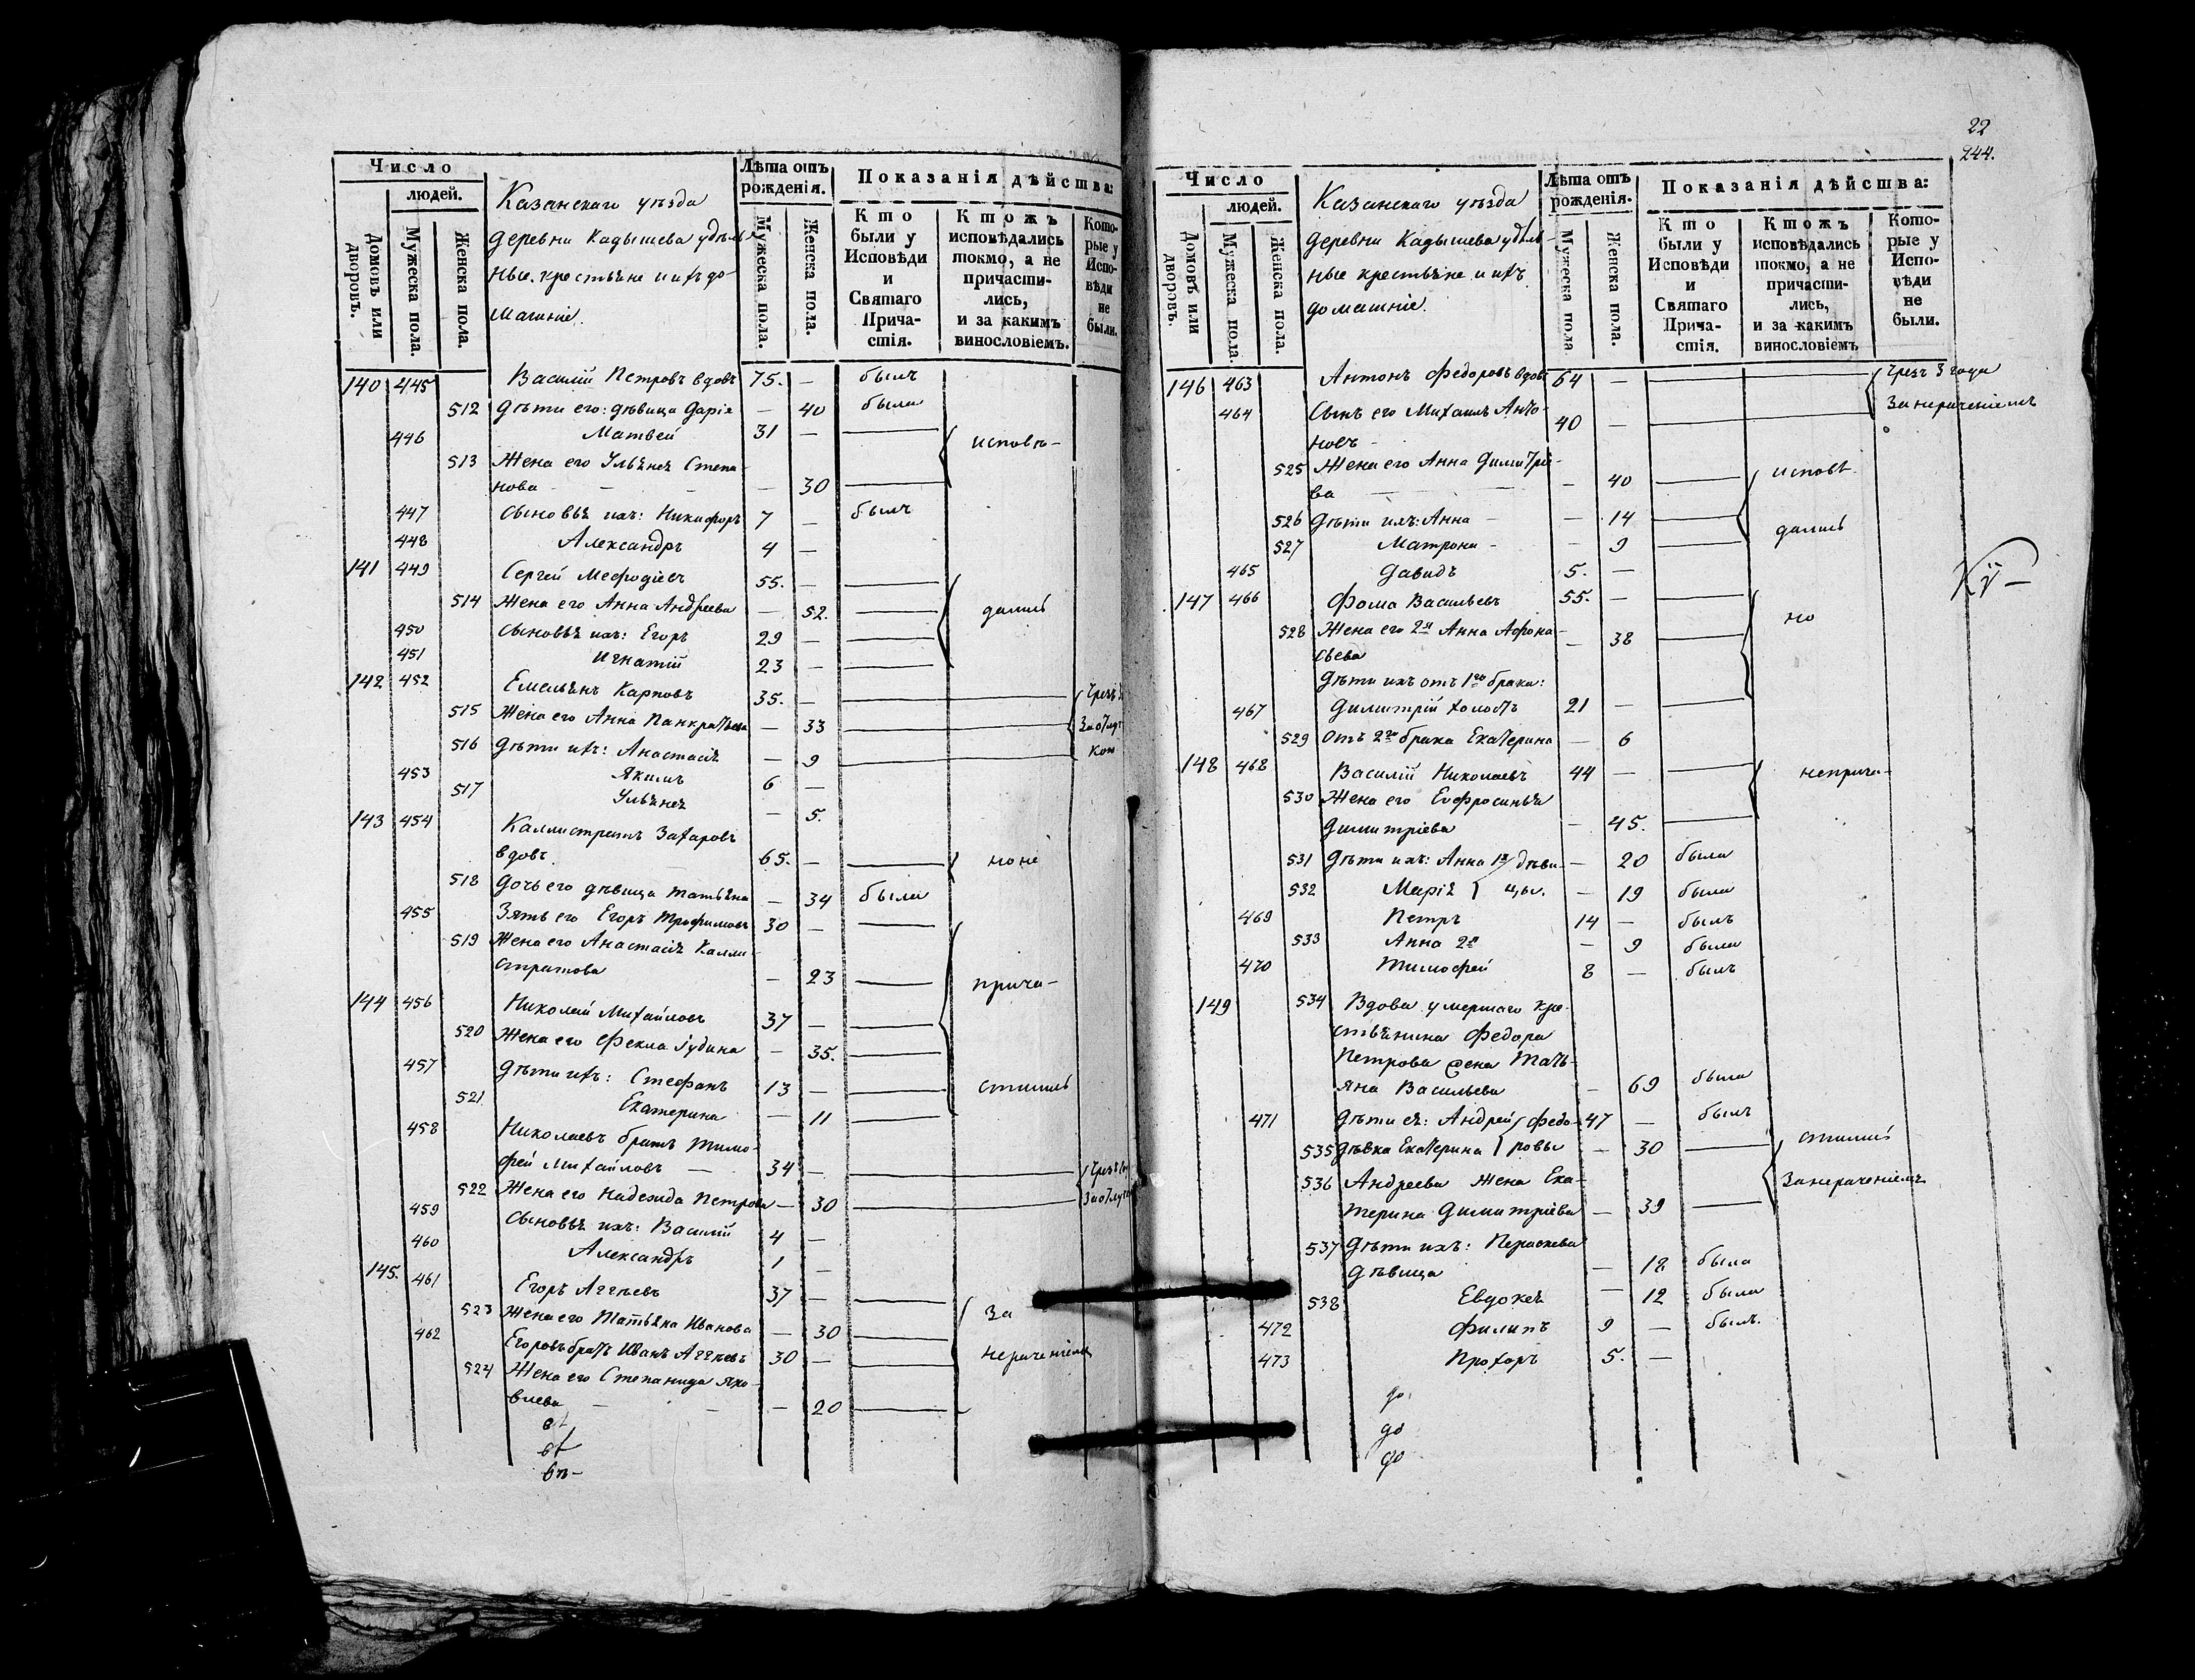 Число
людей.
Домовъ или дворовъ.
Мужеска пола.
Женска пола.
Казанскаго уѣзда
деревни Кадышева удѣль-
ные крестьяне и ихъ до-
машніе.
Лѣта отъ рожденія.
Мужеска пола.
Женска пола.
Показанія дѣйства:
Кто были у Исповѣди и Святаго Прича-стія.
Ктожъ исповѣдались токмо, а не причасти-лись, и за какимъ винословіемъ.
Кото-рые у Испо-вѣди не были.
140 445 Василій Петровъ вдовъ 75. — былъ
512 Дѣти его: дѣвица Дарія — 40 была
446 Матвей 31 —
исповѣ-
513 Жена его Ульяна Степа-
нова — 30
447 Сыновья ихъ: Никифоръ 7 — былъ
448 Александръ 4 —
141 449 Сергей Мефодіевъ 55. —
514 Жена его Анна Андреева — 52. дались
450 Сыновья ихъ: Егоръ 29 —
451 Игнатій 23 —
142 452 Емельянъ Карповъ 35. — Чрезъ
515 Жена его Анна Панкратьева — 33
516 Дѣти ихъ: Анастасія — 9
453 Якимъ 6 —
517 Ульяна — 5.
143 454 Каллистратъ Захаровъ
вдовъ. 65. — но не
518 Дочь его дѣвица Татьяна — 34 была
455 Зять его Егоръ Трофимовъ 30 —
519 Жена его Анастасія Калли-
стратова — 23 прича-
144 456 Николай Михайловъ 37 —
520 Жена его Фекла Іудина — 35.
457 Дѣти ихъ: Стефанъ 13 — стились
521 Екатерина — 11
458 Николаевъ братъ Тимо-
фей Михайловъ — 34 — Чрезъ
522 Жена его Надежда Петрова — 30
459 Сыновья ихъ: Василій 4 —
460 Александръ 1 —
145. 461 Егоръ Аггѣевъ 37 —
За
523 Жена его Татьяна Иванова — 30
462 Егоровъ братъ Иванъ Аггѣевъ 30 — нераченіемъ
524 Жена его Степанида Яко-
влева — 20
22
244.
Число
людей.
Домовъ или дворовъ.
Мужеска пола.
Женска пола.
Казанскаго уѣзда
деревни Кадышева удѣль-
ные крестьяне и ихъ
домашніе.
Лѣта отъ рожденія.
Мужеска пола
Женска пола.
Показанія дѣйства:
Кто были у Исповѣди и Святаго Прича-стія.
Ктожъ исповѣдались токмо, а не причасти-лись, и за какимъ винословіемъ
Кото-рые у Испо-вѣди не были.
146 463 Антонъ Федоровъ вдовъ 64 — Чрезъ 3 года
464 Сынъ его Михаилъ Анто- За нераченіемъ
новъ 40 —
525 Жена его Анна Димитріе- исповѣ-
ва — 40
526 Дѣти ихъ: Анна — 14
527 Матрона — 9 дались
465 Давидъ 5. —
147 466 Фома Васильевъ 55. —
но
528 Жена его 2я Анна Афона-
сьева — 38
Дѣти ихъ отъ 1го брака:
467 Димитрій холостъ 21 —
529 Отъ 2го брака Екатерина — 6
148 468 Василій Николаевъ 44 — неприча-
530 Жена его Евфросинья
Димитріева — 45.
531 Дѣти ихъ: Анна 1я дѣви- — 20 была
532 Марія цы. — 19 была
469 Петръ 14 — былъ
533 Анна 2я — 9 была
470 Тимофей 8 — былъ
149 534 Вдова умершаго кре-
стьянина Федора
Петрова жена Тать-
яна Васильева — 69 была
471 Дѣти ея: Андрей Федо- 47 — былъ
535 дѣвка Екатерина ровы — 30 стились
536 Андреева жена Ека- За нераченіемъ
терина Димитріева — 39
537 Дѣти ихъ: Параскева
дѣвица — 18 была
538 Евдокея — 12 была
472 Филипъ 9 — былъ.
473 Прохоръ 5. —
до
до
до